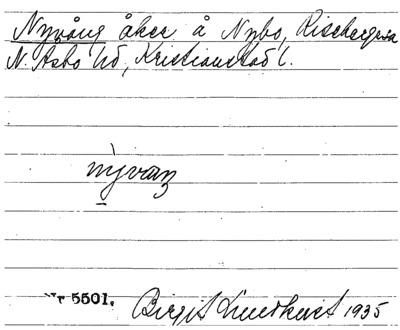 Nyvång åker å Nybo, Riseberga
N. Åsbo hd, Kristianstad l.
nyvaŋ
Nr 5501. Birgit Lindkvist 1935